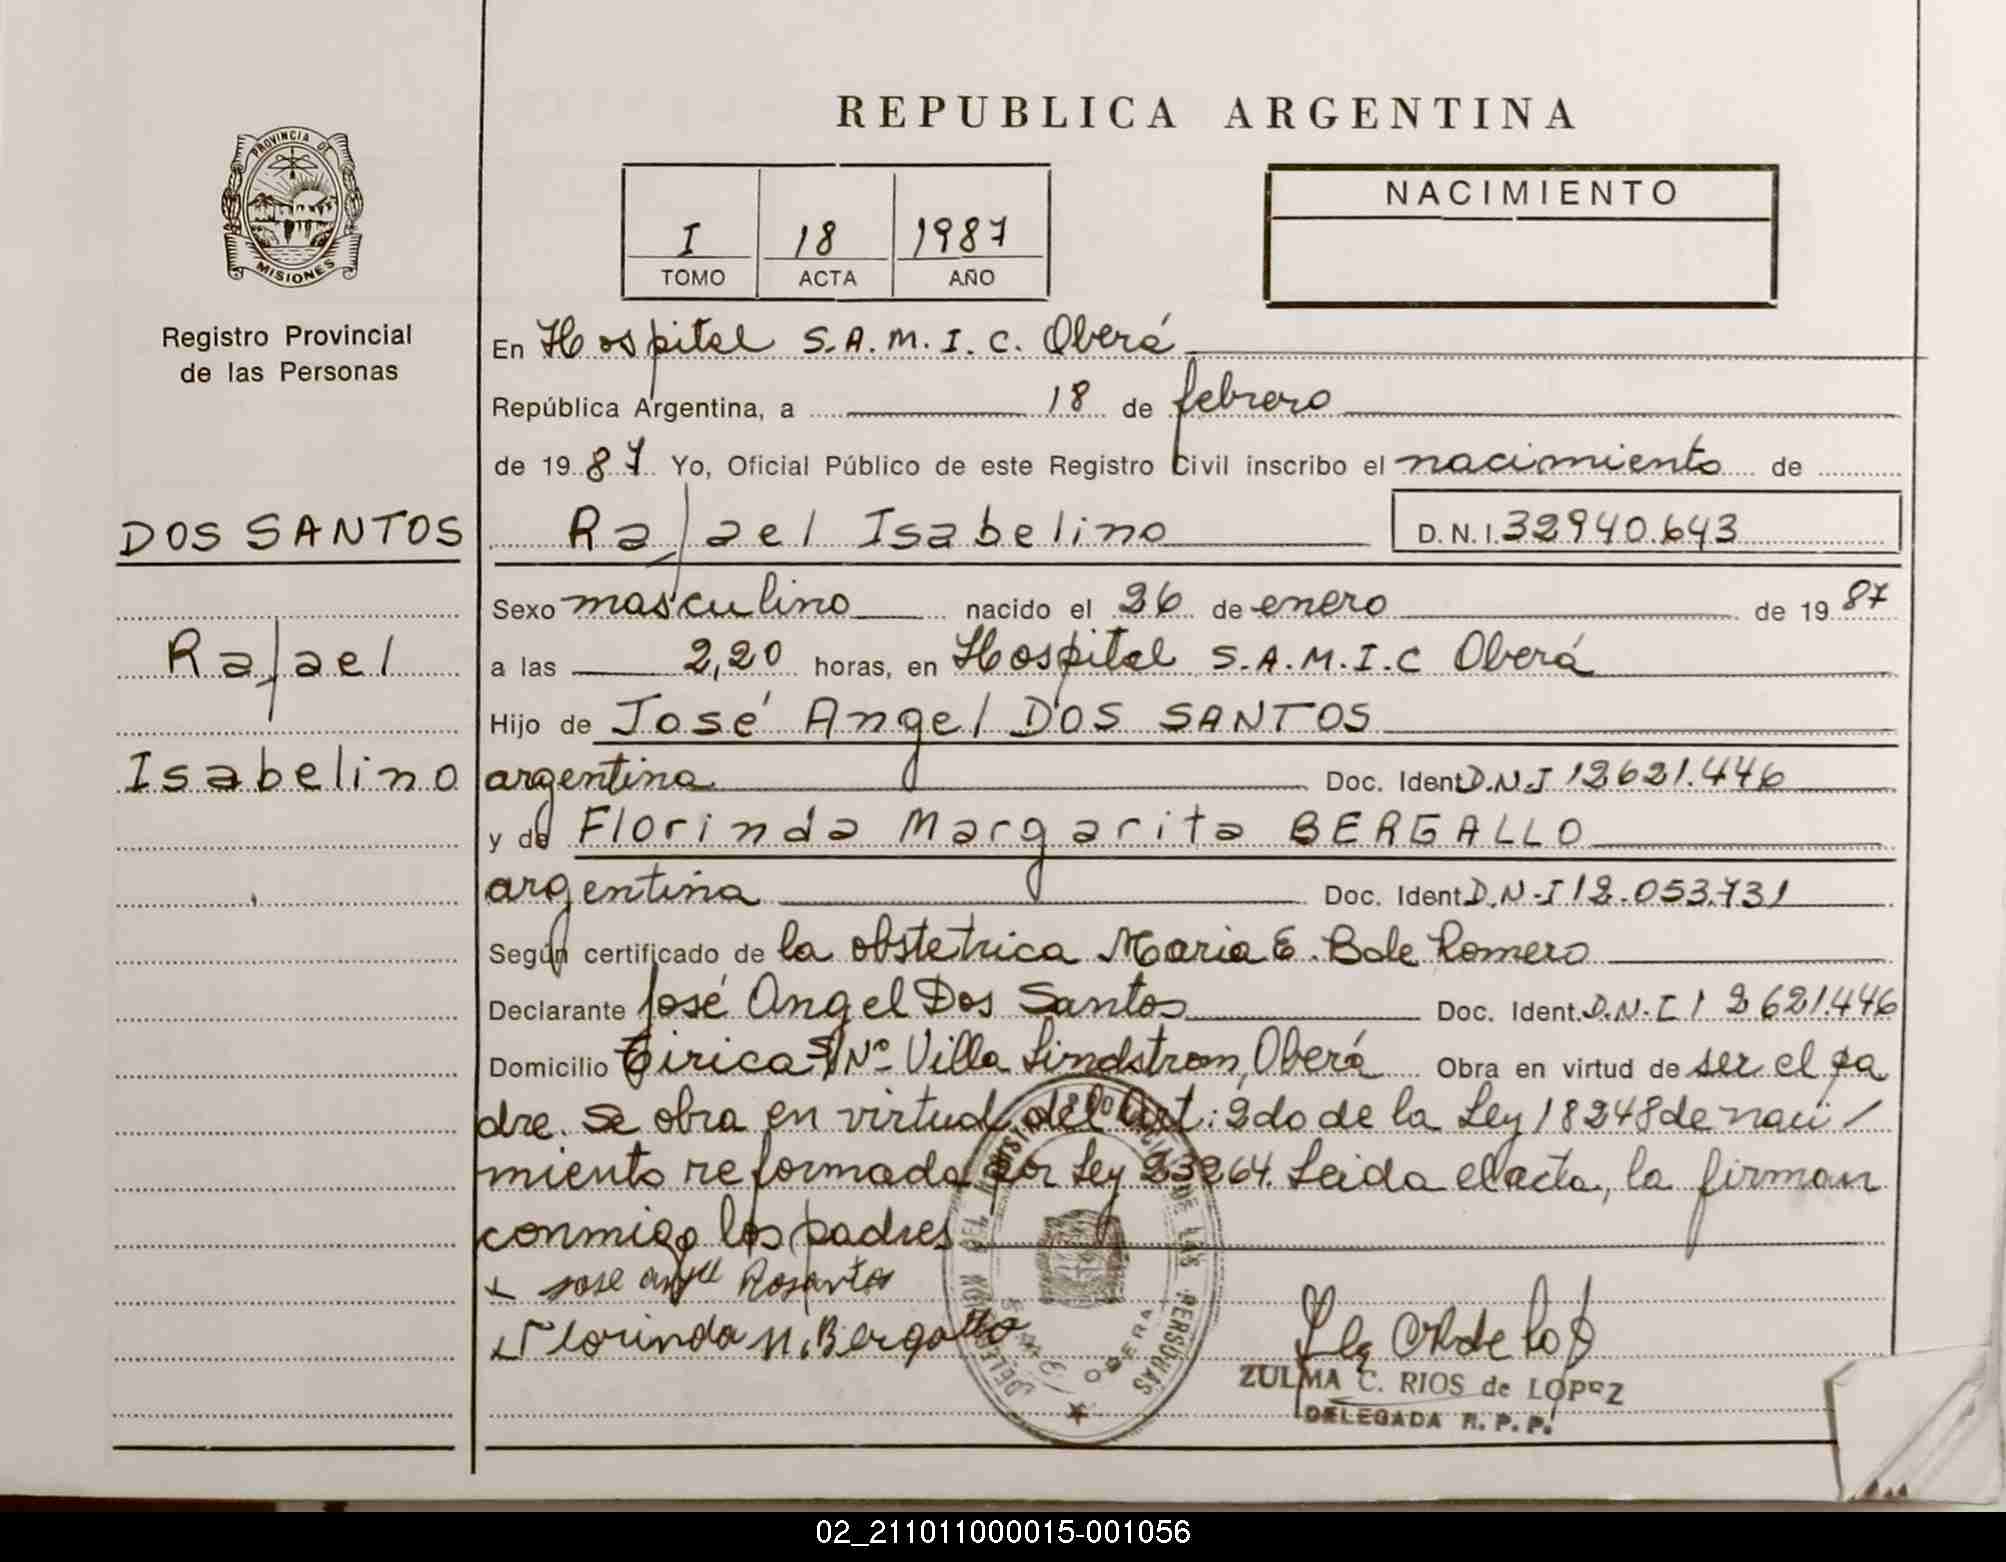 REPUBLICA ARGENTINA
PROVINCIA DE
MISIONES
Registro Provincial
de las Personas
I 18 1987
TOMO ACTA AÑO
NACIMIENTO
En Hospital S.A.M.I.C. Oberá
República Argentina, a 18 de febrero
de 1987 Yo, Oficial Público de este Registro Civil inscribo el nacimiento de
DOS SANTOS
Rafael
Isabelino
Rafael Isabelino D.N.I. 32940.643
Sexo masculino nacido el 26 de enero de 1987
a las 2,20 horas, en Hospital S.A.M.I.C Oberá
Hijo de José Angel DOS SANTOS
argentina Doc. Ident. D.N.I 12621.446
y de Florinda Margarita BERGALLO
argentina Doc. Ident. D.N-I 12.053.731
Según certificado de la obstetrica Maria E. Bole Romero
Declarante José Angel Dos Santos Doc. Ident. D.N.I 12621.446
Domicilio Tirica S/Nº Villa Lindstrom, Oberá Obra en virtud de ser el pa
dre. Se obra en virtud del Art: 2do de la Ley 18248 de naci/
miento reformada por Ley 23264. Leida el acta, la firman
conmigo los padres
Jose
Florinda M. Bergallo
DE LAS PERSONAS
OBERA
ZULMA C. RIOS de LOPEZ
DELEGADA R. P. P.
02_211011000015-001056